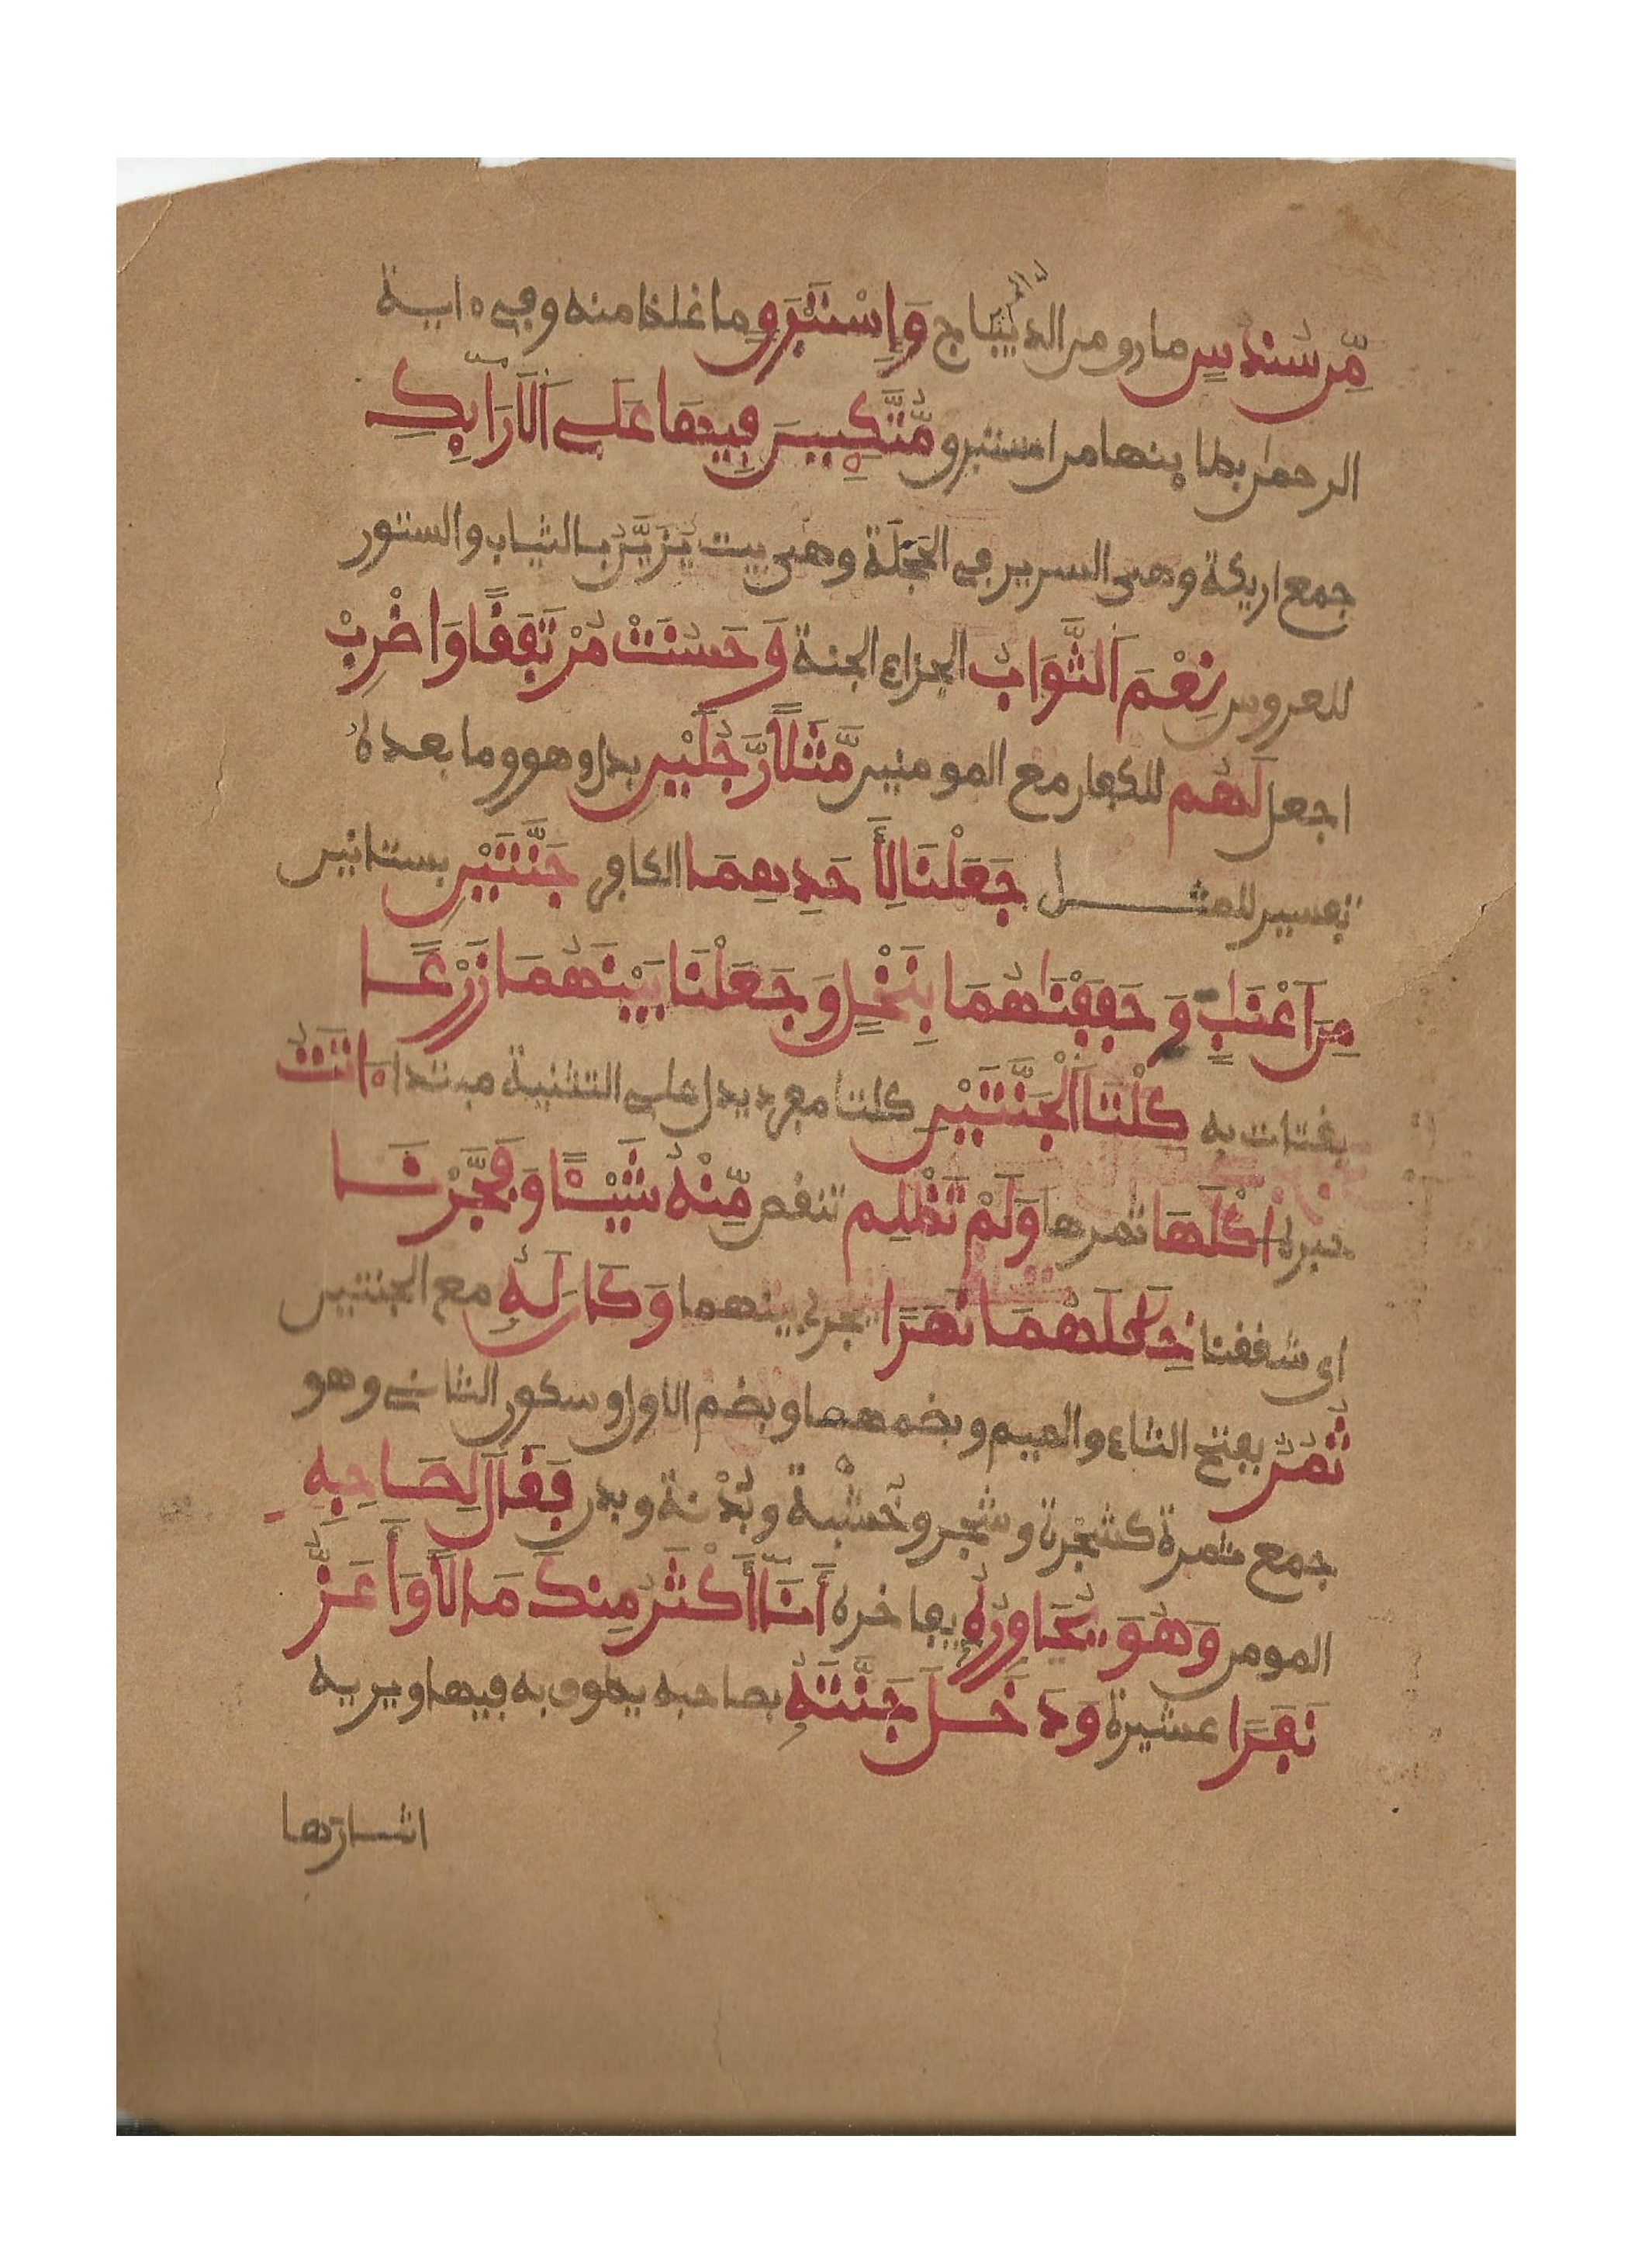 مِّن سُندُسٍ ما رق من الديباج وَإِسْتَبْرَقٍ ما غلظ منه وفي ءاية
الرحمن بطاينها من استبرق مُّتَّكِـِٔينَ فِيهَا عَلَى اَلَارَآئِكِ
جمع اريكة وهي السرير في الحَجَلَة وهي بيت يُزَيَّنُ بالثياب والستور
للعروس نِعْمَ اَلثَّوَابُ الجزاء الجنة وَحَسُنَتْ مُرْتَفَقًا وَاضْرِبْ
اجعل لَهُم للكفار مع المومنين مَّثَلًا رَّجُلَيْنِ بدل وهو وما بعده
تفسير للمثل جَعَلْنَا لِأَحَدِهِمَا الكافر جَنَّتَيْنِ بستانين
مِنَ اَعْنَٰبٍ وَحَفَفْنَٰهُمَا بِنَخْلٍ وَجَعَلْنَا بَيْنَهُمَا زَرْعًا
يقتات به كِلْتَا اَلْجَنَّتَيْنِ كلتا مفرد يدل على التثنية مبتدا ءَاتَتُ
خبره اُكْلَهَا ثمرها وَلَمْ تَظْلِم تنقص مِّنْهُ شَيْـًٔا وَفَجَّرْنَا
اي شققنا خِلَٰلَهُمَا نَهَرًا يجري بينهما وَكَانَ لَهُۥ مع الجنتين
ثُمُرٌ بفتح الثاء والميم وبضمهما وبضم الاول وسكون الثاني وهو
جمع ثمرة كشجرة وشجر وخشبة وبدنة وبدن فَقَالَ لِصَاحِبِهِ
المومن وَهُوَ يُحَاوِرُهُ يفاخره أَنَآ أَكْثَرُ مِنكَ مَالًا وَأَعَزُّ
نَفَرًا عشيرة وَدَخَلَ جَنَّتَهُ بصاحبه يطوف به فيها ويريه
اثارها